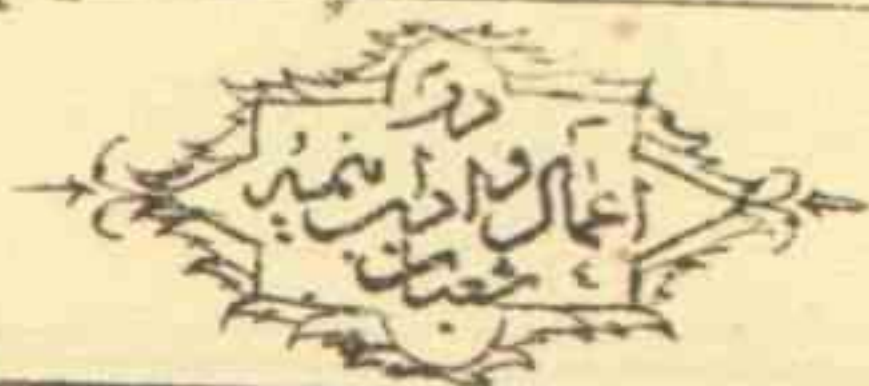 در
اعمال و آداب نیمهٔ
شعبان